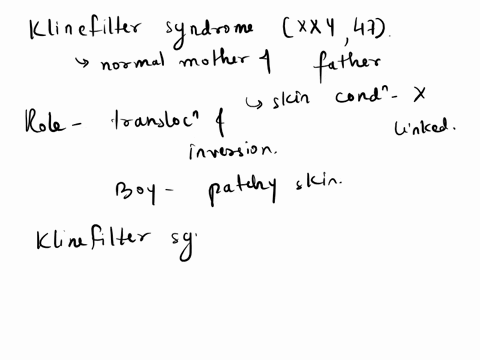 Klinefilter syndrome (XXY, 47).
↳ normal mother & father
↳ skin condⁿ - X linked.
Role - translocⁿ &
inversion.
Boy - patchy skin.
Klinefilter sy